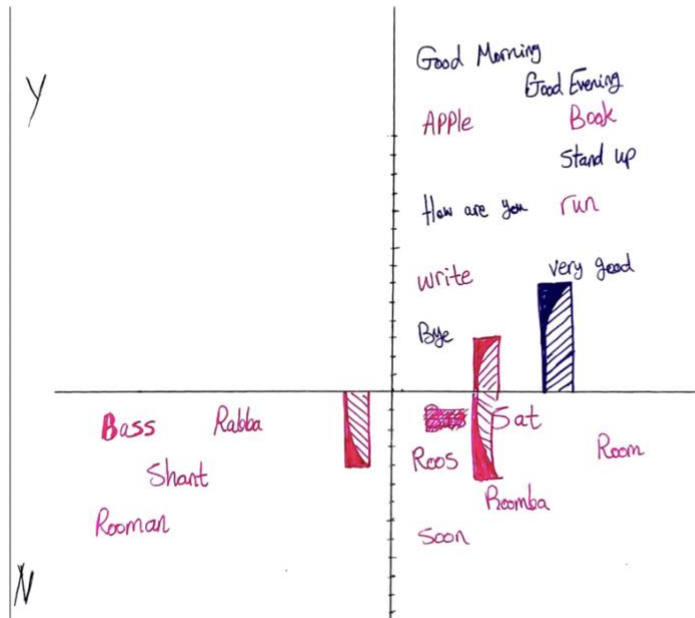 Good Morning
Y
Good Evening
APPle
Book
Stand up
How are you
run
write
very good
Bye
Bass
Rabba
Sat
Roos
Room
Shant
Roomba
Rooman
Soon
N